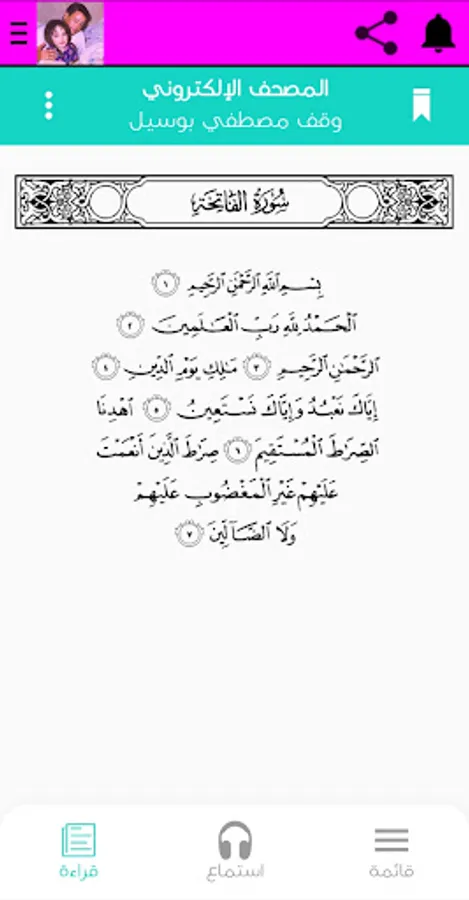 المصحف الإلكتروني
وقف مصطفي بوسيل
سُورَةُ الفَاتِحَةِ
بِسْمِ اللَّهِ الرَّحْمَٰنِ الرَّحِيمِ ١
الْحَمْدُ لِلَّهِ رَبِّ الْعَالَمِينَ ٢
الرَّحْمَٰنِ الرَّحِيمِ ٣ مَالِكِ يَوْمِ الدِّينِ ٤
إِيَّاكَ نَعْبُدُ وَإِيَّاكَ نَسْتَعِينُ ٥ اهْدِنَا
الصِّرَاطَ الْمُسْتَقِيمَ ٦ صِرَاطَ الَّذِينَ أَنْعَمْتَ
عَلَيْهِمْ غَيْرِ الْمَغْضُوبِ عَلَيْهِمْ
وَلَا الضَّالِّينَ ٧
قائمة
استماع
قراءة